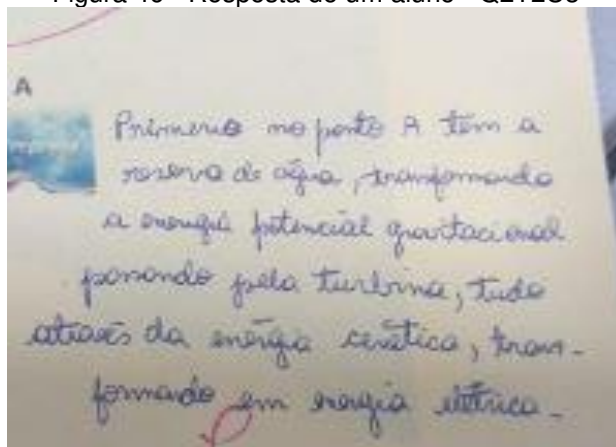 A
Primeiro no ponto A tem a
reserva de água, transformando
a energia potencial gravitacional
passando pela turbina, tudo
através da energia cinética, trans-
formando em energia elétrica.